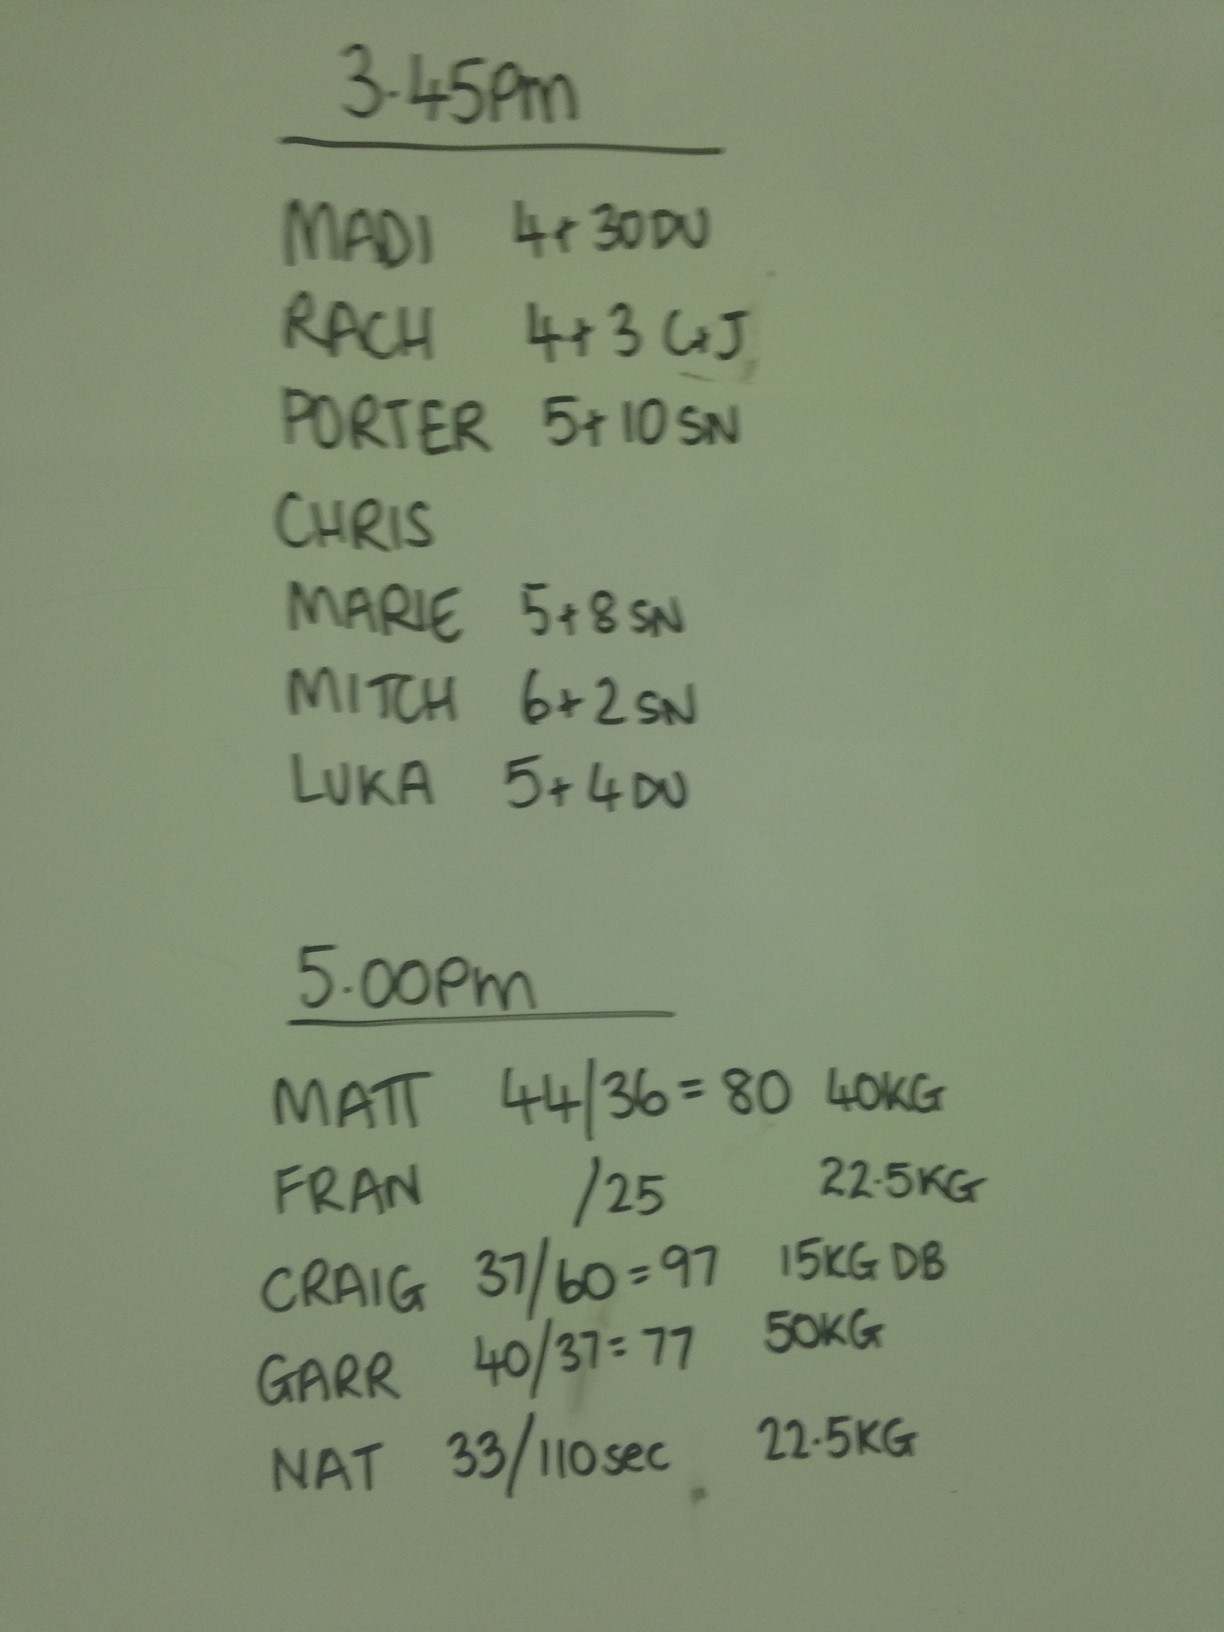 3.45pm
MADI 4+30DU
RACH 4+3 C+J
PORTER 5+10 SN
CHRIS
MARIE 5+8 SN
MITCH 6+2 SN
LUKA 5+4 DU
5.00pm
MATT 44/36=80 40KG
FRAN /25 22.5KG
CRAIG 37/60=97 15KG DB
GARR 40/37=77 50KG
NAT 33/110sec 22.5KG